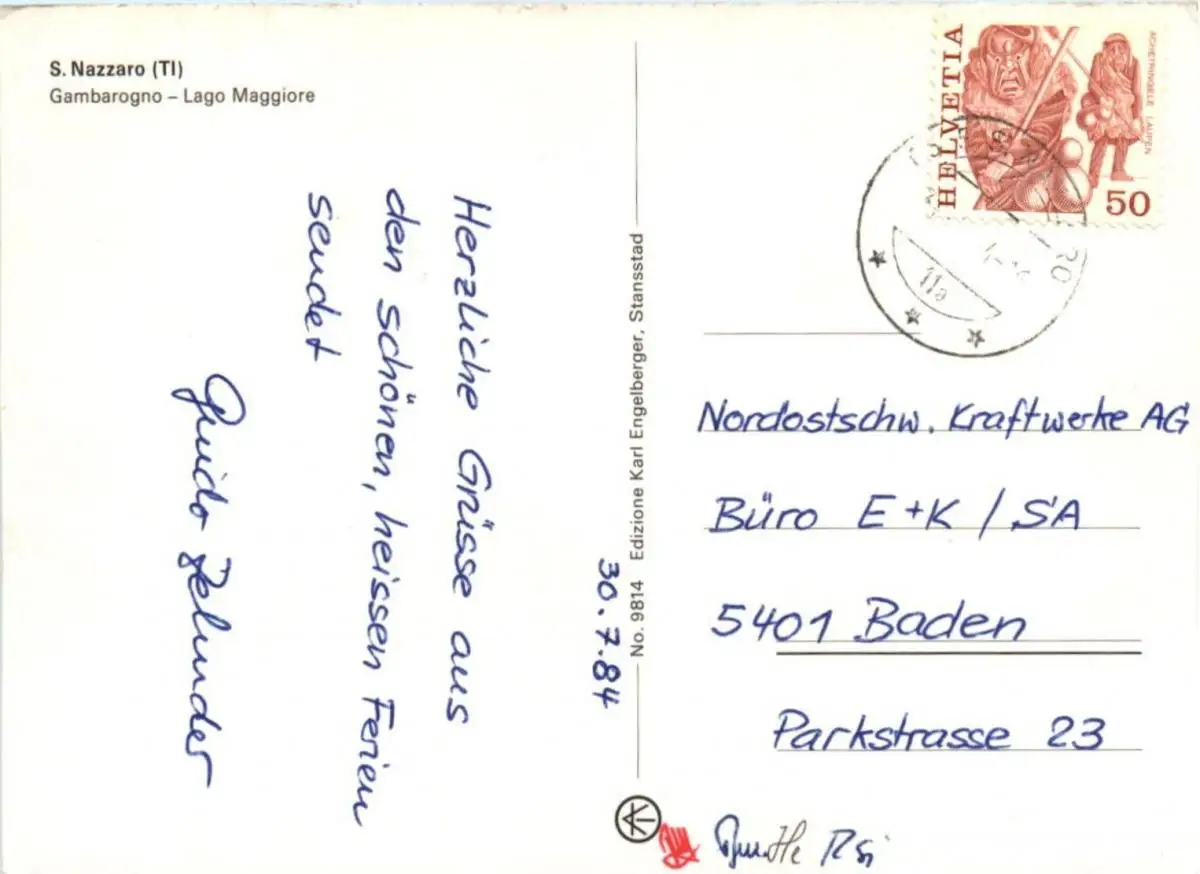 S. Nazzaro (TI)
Gambarogno – Lago Maggiore
Herzliche Grüsse aus
den schönen, heissen Ferien
sendet
Guido Zehnder
30.7.84
No. 9814 Edizione Karl Engelberger, Stansstad
HELVETIA
ACHETRINGELE · LAUPEN
50
11a
Nordostschw. Kraftwerke AG
Büro E+K / SA
5401 Baden
Parkstrasse 23